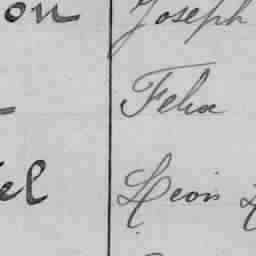 on Joseph
Felix
el Léon